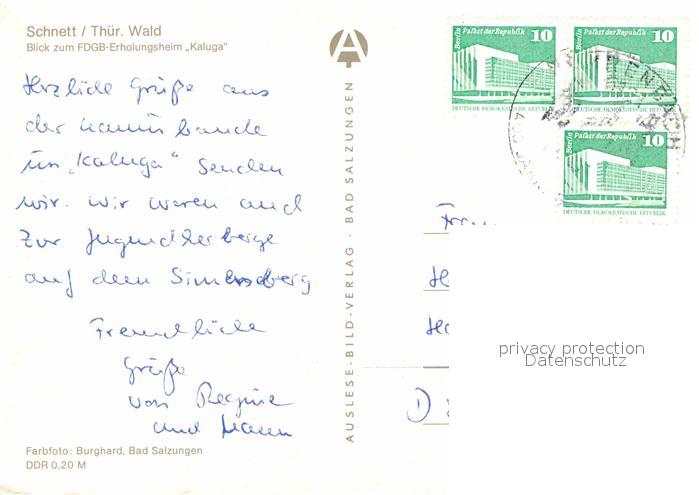 Schnett / Thür. Wald
Blick zum FDGB-Erholungsheim „Kaluga“
Herzliche Grüße aus
der
im „Kaluga“ senden
wir. wir waren auch
zur Jugendherberge
auf dem Simmersberg
Freundliche
Grüße
von Regine
und
Farbfoto: Burghard, Bad Salzungen
DDR 0,20 M
AUSLESE-BILD-VERLAG · BAD SALZUNGEN
Berlin Palast der Republik 10
DEUTSCHE DEMOKRATISCHE REPUBLIK
Berlin Palast der Republik 10
Berlin Palast der Republik 10
DEUTSCHE DEMOKRATISCHE REPUBLIK
D
privacy protection
Datenschutz